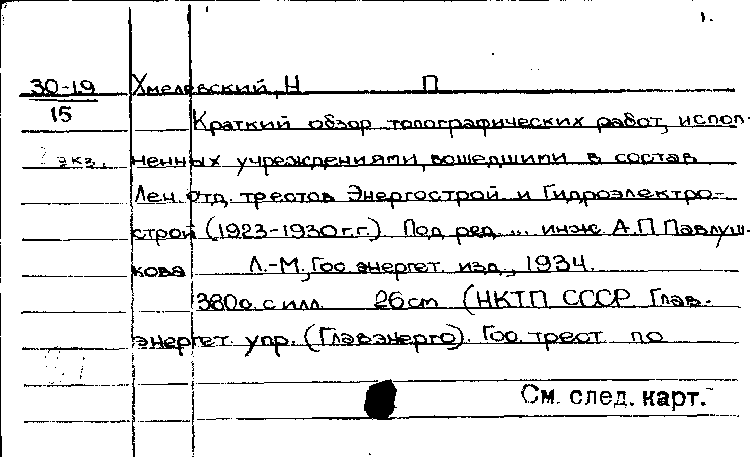 1.
30-19 Хмелевский, Н П
15
Краткий обзор топографических работ, испол-
экз. ненных учреждениями, вошедшими в состав
Лен. отд. трестов Энергострой и Гидроэлектро-
строй (1923-1930 г.г.) Под ред. ... инж. А.П. Павлуш-
кова Л.-М., Гос. энергет. изд., 1934.
380 с. с илл. 26 см (НКТП СССР Глав-
энергет. упр. (Главэнерго). Гос. трест по
См. след. карт.